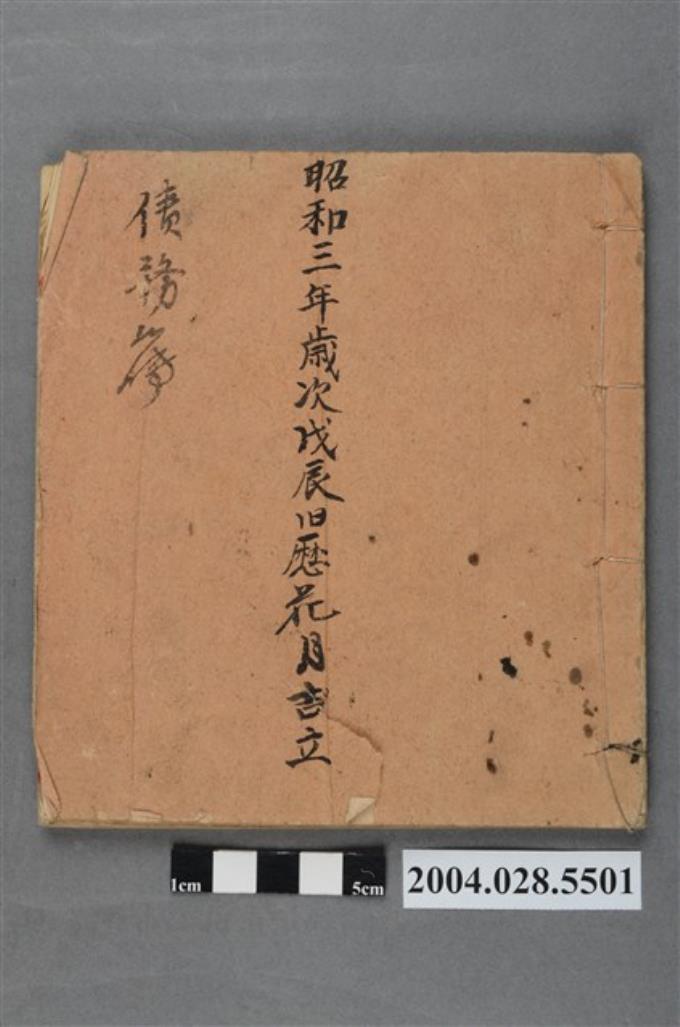 昭和三年歳次戊辰旧暦花月吉立
債務簿
1cm 5cm
2004.028.5501